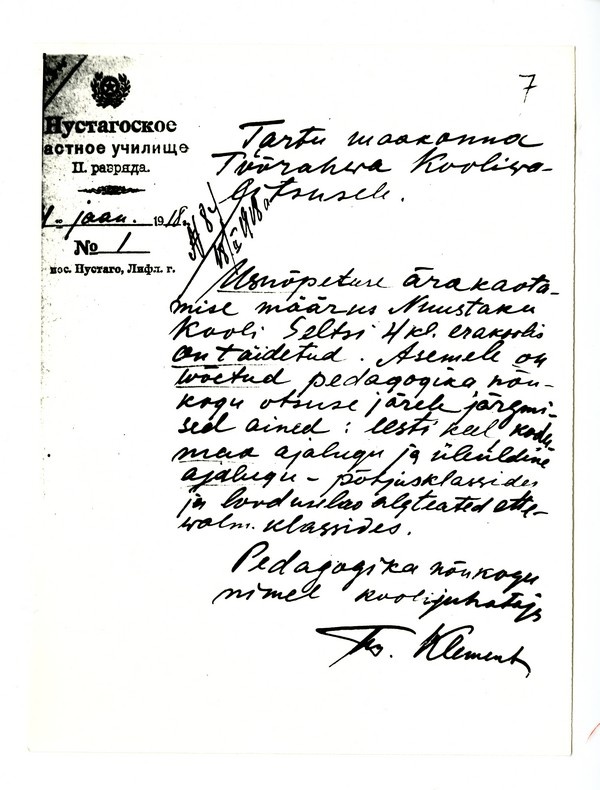 7
Нустагоское
астное училище
II. разряда.
4. jaan. 1918.
№ 1
пос. Нустаго, Лифл. г.
Tartu maakonna
Töörahwa Kooliwa-
litsusele.
Usuõpetuse ärakaota-
mise määrus Nuustaku
Kooli Seltsi 4 kl. erakoolis
on täidetud. Asemele on
wõetud pedagogika nõu-
kogu otsuse järele järgmi-
sed ained: eesti keel, kodu-
maa ajalugu ja üleüldine
ajalugu - põhjusklassides
ja loodusloo algteated ette-
walm. klassides.
Pedagogika nõukogu
nimel koolijuhataja
Klement